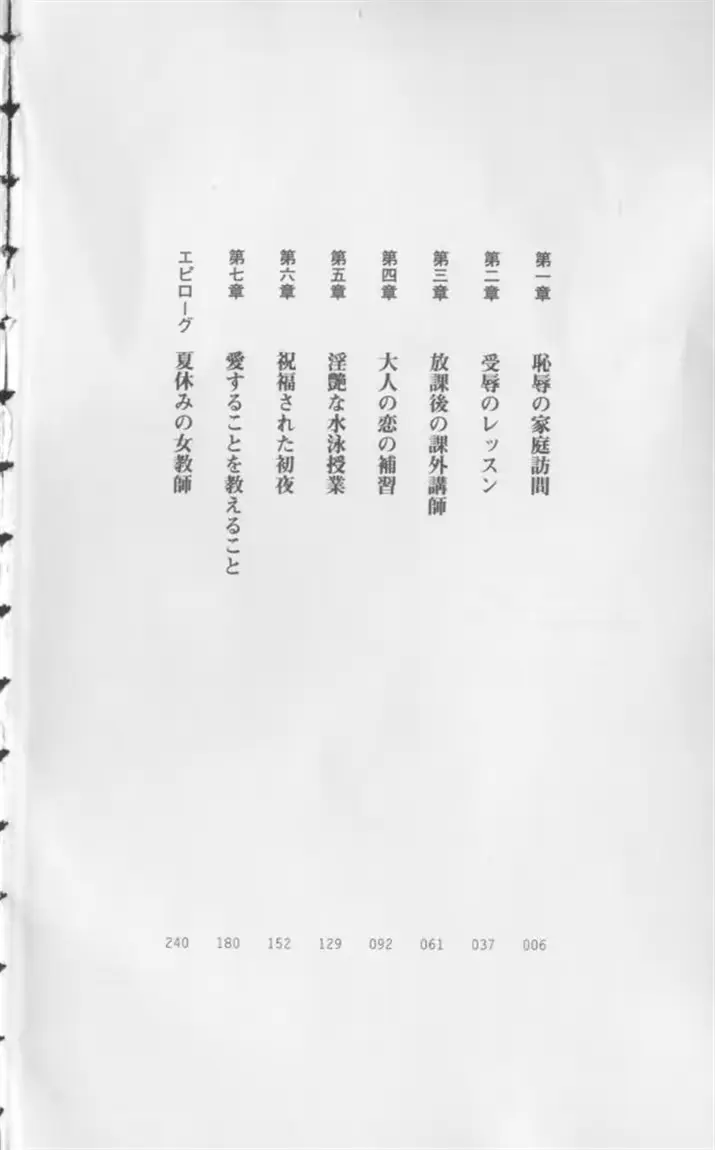 第一章 恥辱の家庭訪問 006
第二章 受辱のレッスン 037
第三章 放課後の課外講師 061
第四章 大人の恋の補習 092
第五章 淫艶な水泳授業 129
第六章 祝福された初夜 152
第七章 愛することを教えること 180
エピローグ 夏休みの女教師 240